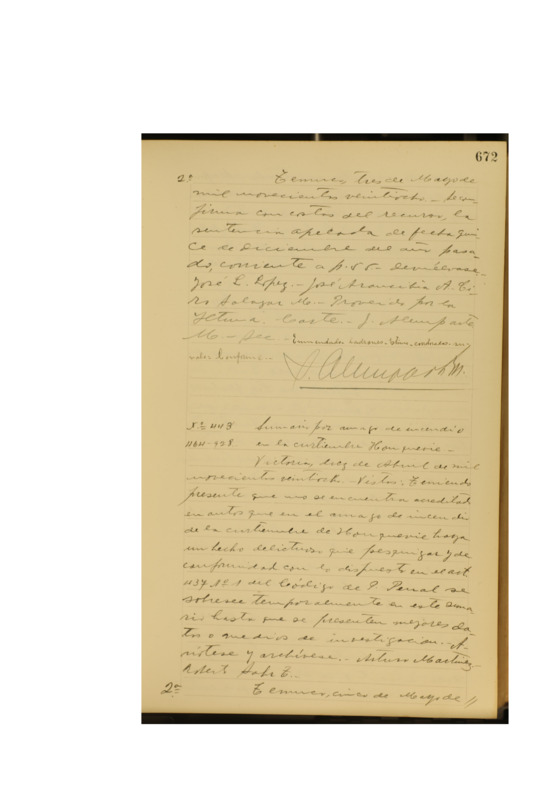 672
2ª Temuco, tres de Mayo de
mil novecientos veintiocho - Se con-
firma con costas del recurso, la
sentencia apelada de fecha quin
ce de Diciembre del año pasa-
do, corriente a f. 55 - Devuélvase.
José L. Lopez - José Aravantia A. Ci-
ro Salazar M. - Proveido por la
Iltma. Corte - J. Alemparte
M. - Sec - Enmendados
vales Conforme -
J. Alemparte M.
Nº 443 Sumario por amago de incendio
en la curtiembre Hourquevie -
Victoria, diez de Abril de mil
novecientos veintiocho - Vistos: Teniendo
presente que no se encuentra acreditado
en autos que en el amago de incendio
de la curtiembre de Hourquevie haya
un hecho delictuoso que pesquisar y de
conformidad con lo dispuesto en el art.
437 Nº 1 del Código de P. Penal se
sobresee temporalmente en este suma
rio hasta que se presenten mejores da
tos o medios de investigación. - A-
nótese y archívese. - Arturo Martinez -
Roberto
2ª Temuco, cinco de Mayo de //